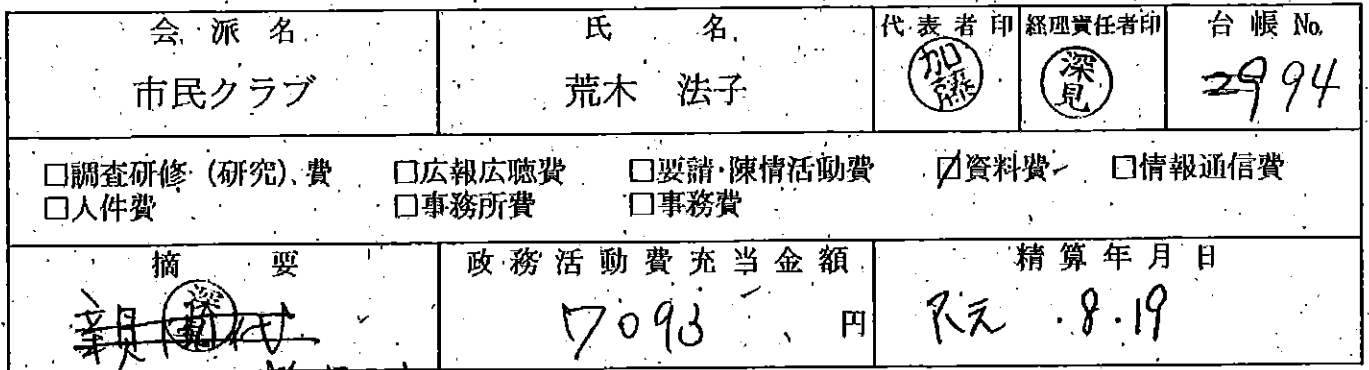 会派名 氏名 代表者印 経理責任者印 台帳No.
市民クラブ 荒木 法子 加藤 深見 94
□調査研修(研究)費 □広報広聴費 □要請・陳情活動費 ☑資料費 □情報通信費
□人件費 □事務所費 □事務費
摘要 政務活動費充当金額 精算年月日
深見 7093 円 R元.8.19